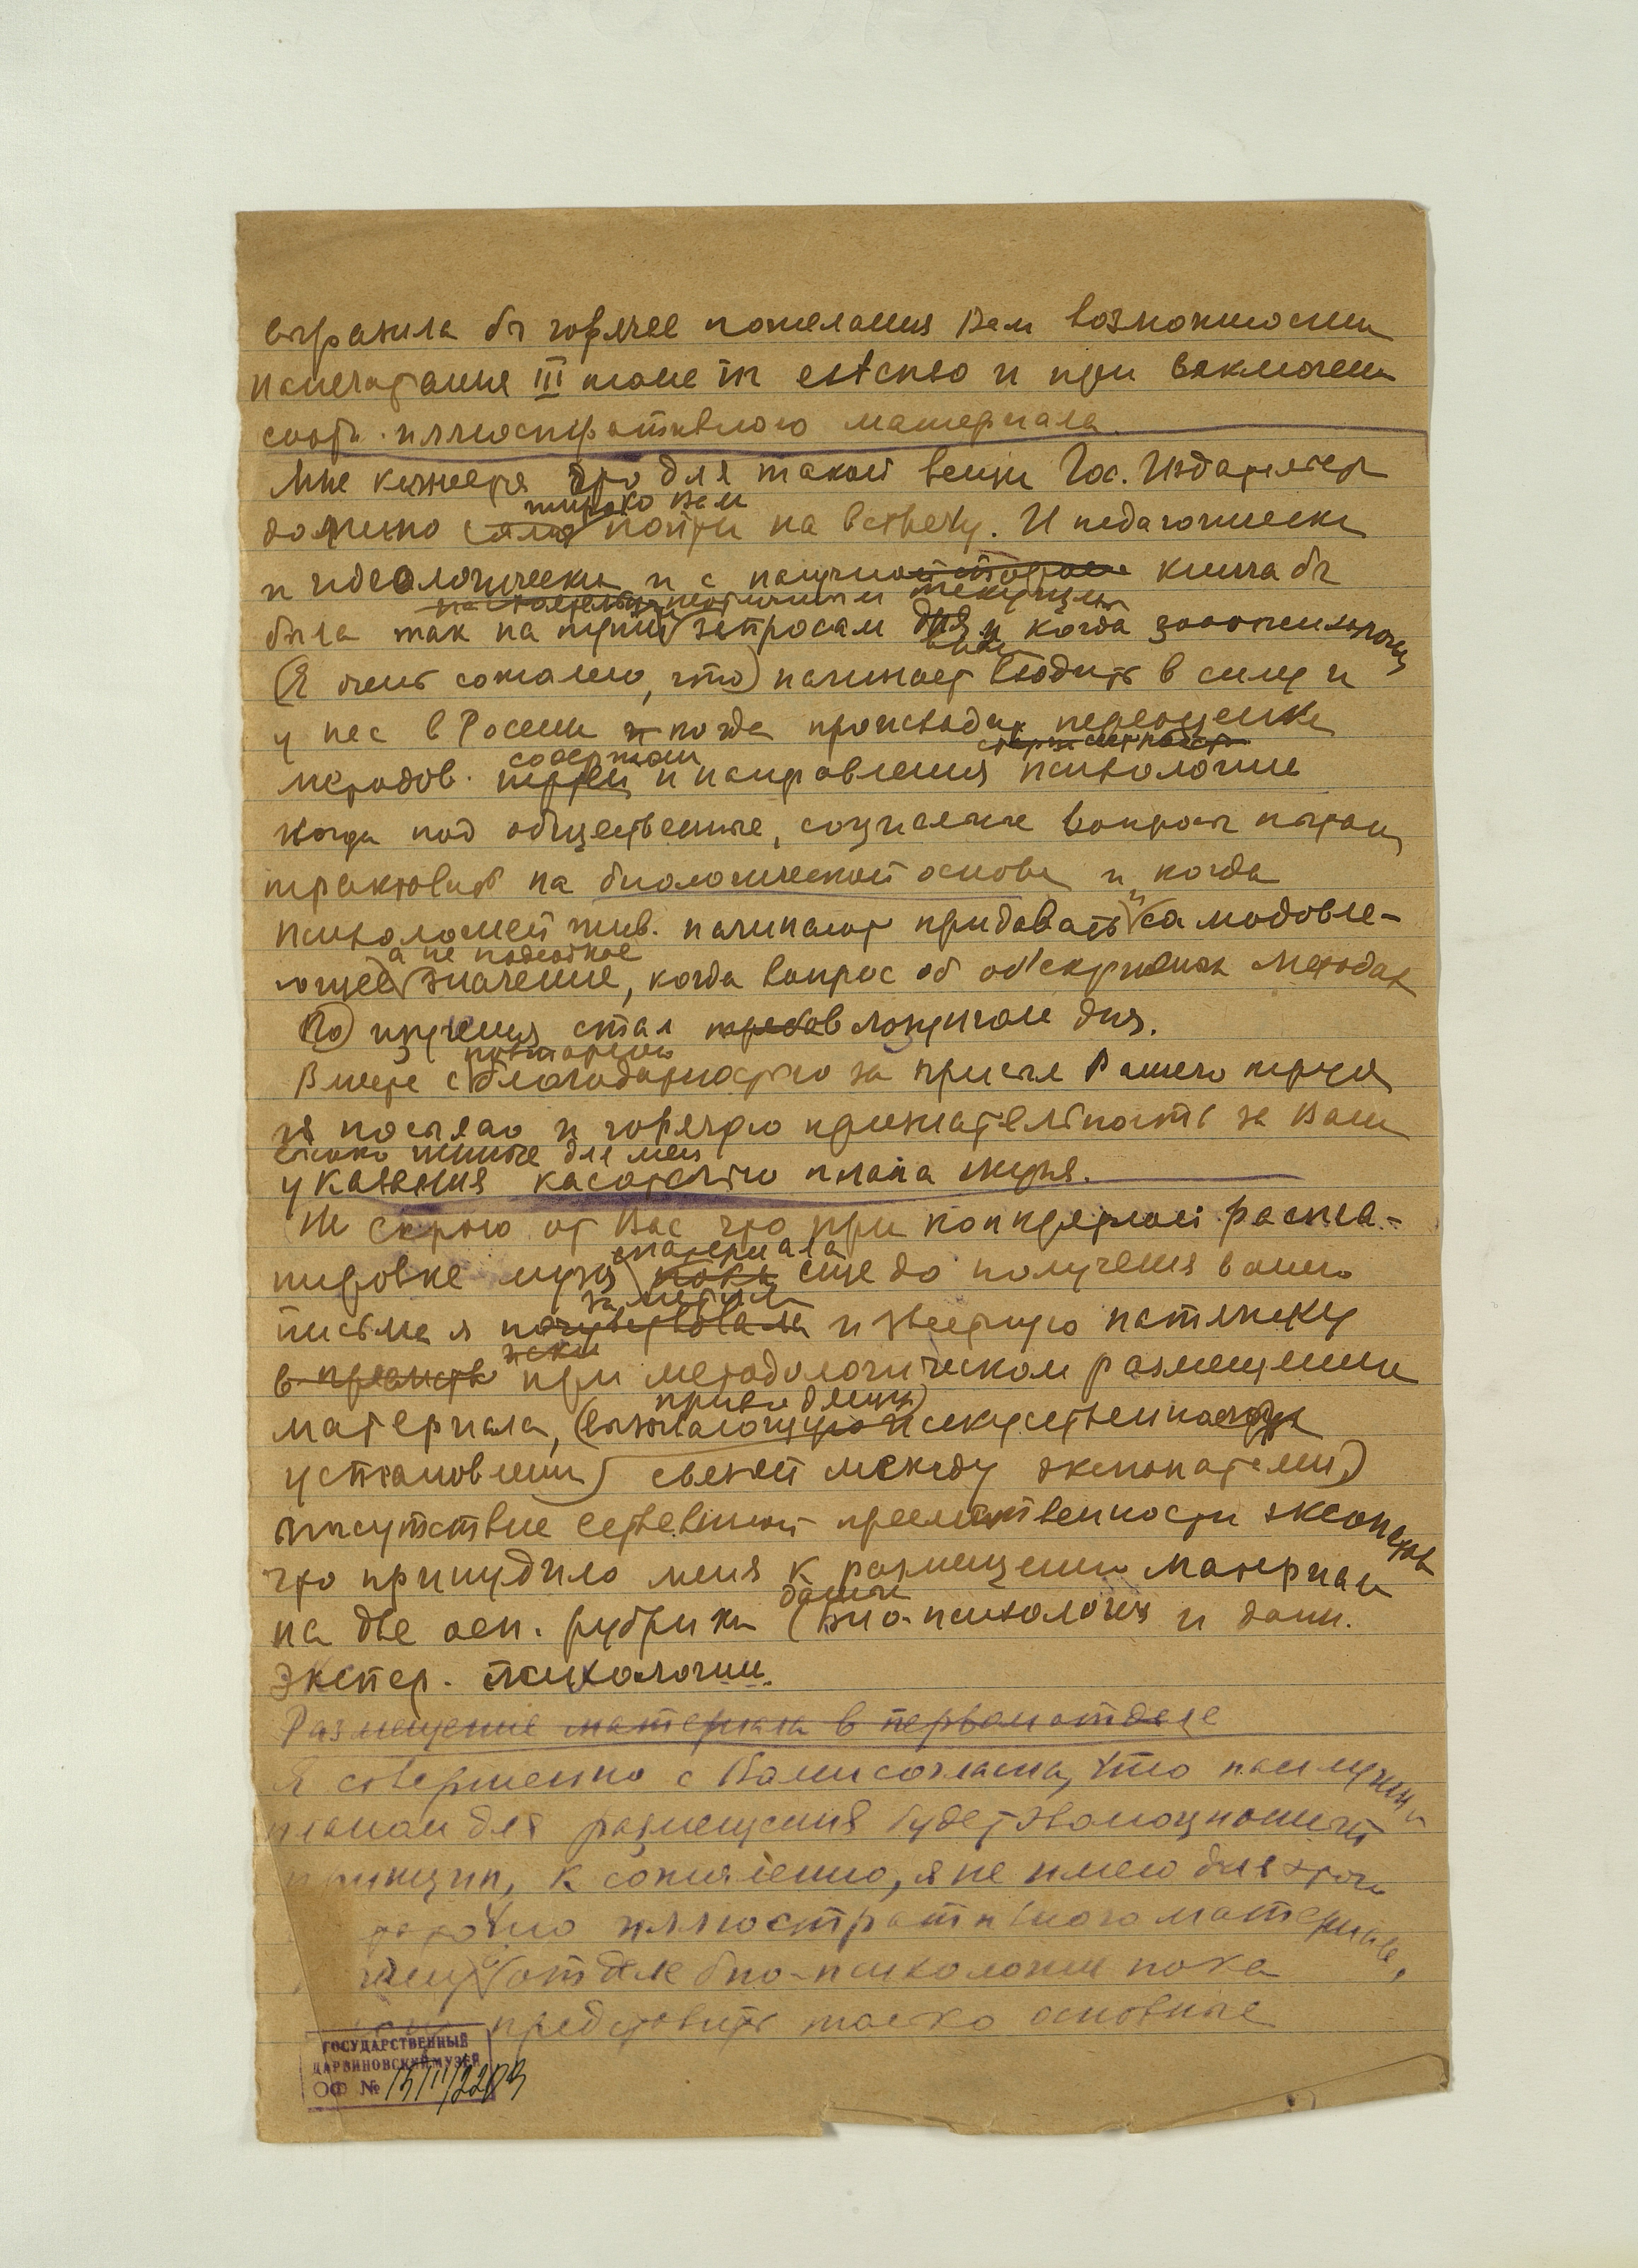 выразила бы горячее пожелания Вам возможности
напечатания III тома in extenso и при включении
соотв. иллюстративного материала.
Мне кажется что для такой вещи Гос. Издательст
должно
широко Вам
пойти на встречу. И педагогически
и идеологически и с научной стороны книга бы
текущим
была так на нужна запросам дня когда зоопсихология
(Я очень сожалею, что) начинает входить в силу и
у нас в России и когда происходит переоценка
содержан
методов. и направления психологии
когда под общественные, социальные вопросы пытают
трактовать на биологической основе и когда
психологией жив. начинают придавать самодовле-
а не подсобное
ющее значение, когда вопрос об об'ективных методах
изучения стал лозунгом дня.
Вместе с благодарностью за присыл Вашего труда
я посылаю и горячую признательность за Ваши
для меня
указания касательно плана музея.
Не скрою от Вас что при конкретной распла-
материала
нировке музея еще до получения вашего
заметила
письма я почувствовала известную натяжку
в при методологическом размещении
материала, (вызывающую искусственное
установлении) связей между экспонатами,
отсутствие естественной преемственности экспонатов
что принудило меня к размещению материала
данные
на две осн. рубрики (био-психология и данн.
экспер. психологии.
Размещение материала в первом отделе
Я совершенно с Вами согласна, что наилучшим
планом для размещения будет эволюционный
принцип, к сожалению, я не имею для этого
иллюстративного материала,
отделе био-психологии пока
представить только основные
ГОСУДАРСТВЕННЫЙ
ДАРВИНОВСКИЙ МУЗЕЙ
ОФ №